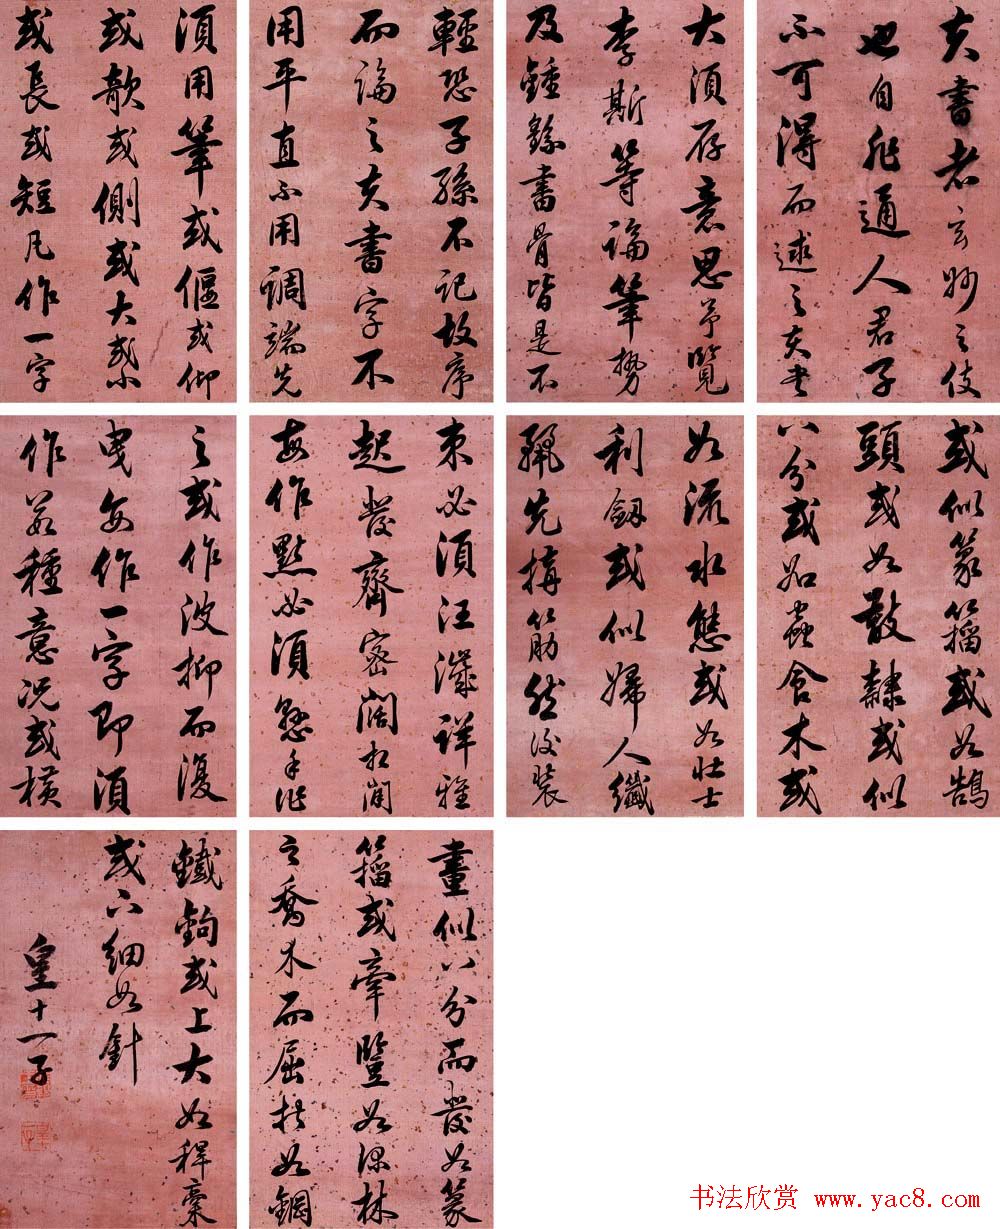 夫書者玄妙之伎
也自非通人君子
不可得而述之夫書
大須存意思予覽
李斯等論筆勢
及鍾繇書骨皆是不
輕恐子孫不記故序
而論之夫書字不
用平直不用調端先
須用筆或偃或仰
或欹或側或大或小
或長或短凡作一字
或似篆籀或如鵠
頭或如散隸或似
八分或如蟲食木或
如流水態或如壯士
利劔或似婦人纖
麗先搆筋然後裝
束必須注洋詳雅
起發齊密闊相間
每作點必須懸手作
之或作波抑而復
曳每作一字即須
作數種意況或橫
畫似八分而發如篆
籀或牽豎如深林
之喬木而屈折如鋼
鐵鉤或上大如稈稾
或下細如針
皇十一子
书法欣赏 www.yac8.com